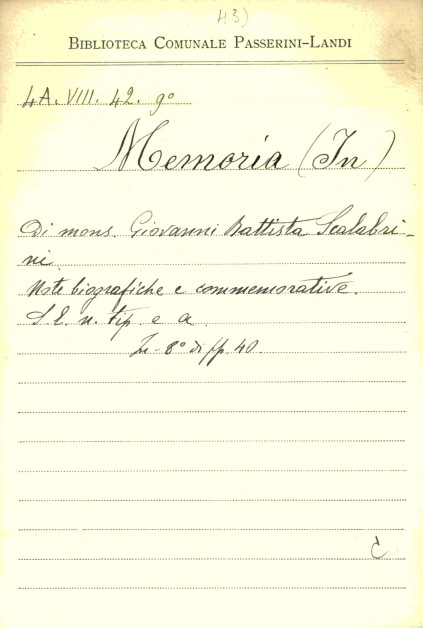 43)
BIBLIOTECA COMUNALE PASSERINI-LANDI
4A. VIII. 42. 9º
Memoria (In)
Di mons. Giovanni Battista Scalabri-
ni
Note biografiche e commemorative.
S. E. n. tip. e a.
In-8º di pp. 40.